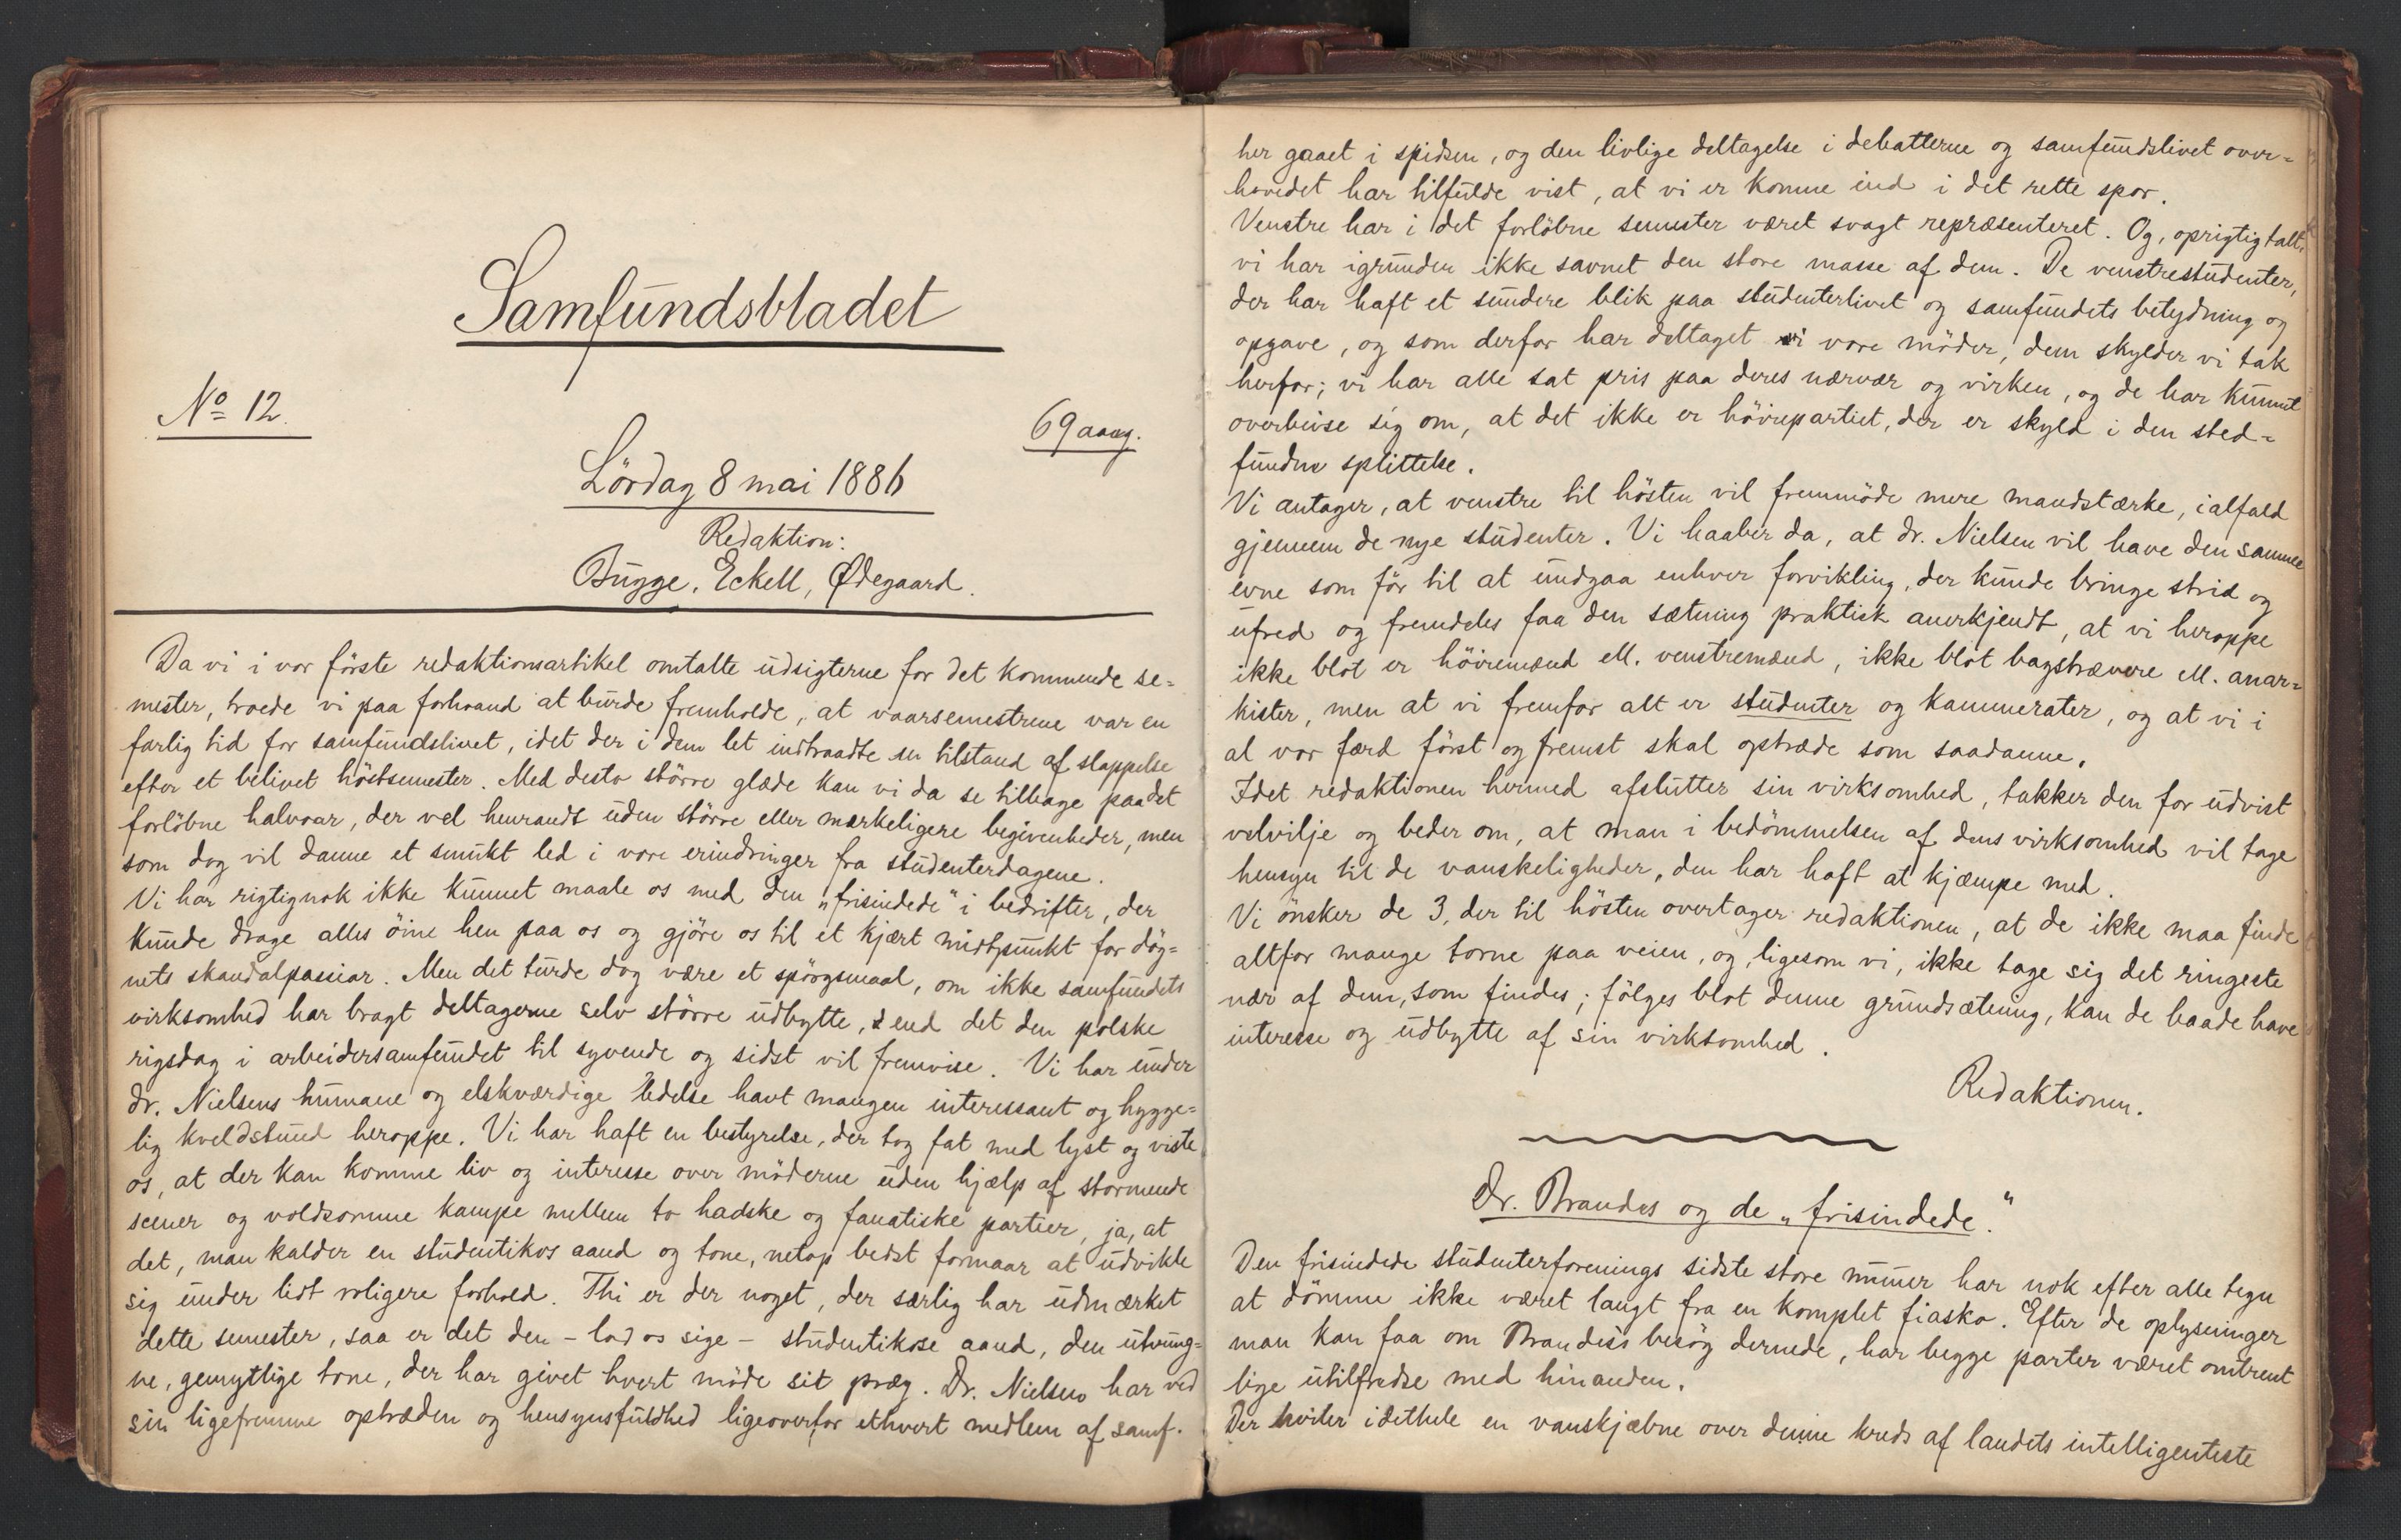 Samfundsbladet
No 12.
69 aarg.
Lördag 8 mai 1886
Redaktion:
Bugge, Eckell, Ødegaard.
Da vi i vor förste redaktionsartikel omtalte udsigterne for det kommende se=
mester, troede vi paa forhaand at burde fremholde, at vaarsemestrene var en
farlig tid for samfundslivet, idet der i dem let indtraadte en tilstand af slappelse
efter et belivet höstsemester. Med desto större glæde kan vi da se tilbage paa det
forlöbne halvaar, der vel henrandt uden större eller mærkeligere begivenheder, men
som dog vil danne et smukt led i vore erindringer fra studenterdagene.
Vi har rigtignok ikke kunnet maale os med den „frisindede“ i bedrifter, der
kunde drage alles öine hen paa os og gjöre os til et kjært midtpunkt for dög=
nets skandalpassiar. Men det turde dog være et spörgsmaal, om ikke samfundets
virksomhed har bragt deltagerne selv större udbytte, end det den polske
rigsdag i arbeidersamfundet til syvende og sidst vil fremvise. Vi har under
dr. Nielsens humane og elskværdige ledelse havt mangen interessant og hygge=
lig kveldstund heroppe. Vi har haft en bestyrelse, der tog fat med lyst og viste
os, at der kan komme liv og interesse over möderne uden hjælp af stormende
scener og voldsomme kampe mellem to hadske og fanatiske partier, ja, at
det, man kalder en studentikos aand og tone, netop bedst formaar at udvikle
sig under lidt roligere forhold. Thi er der noget, der særlig har udmærket
dette semester, saa er det den – lad os sige – studentikose aand, den utvung=
ne, gemytlige tone, der har givet hvert möde sit præg. Dr. Nielsen har ved
sin ligefremme optræden og hensynsfuldhed ligeoverfor ethvert medlem af samf.
her gaaet i spidsen, og den livlige deltagelse i debatterne og samfundslivet over=
hovedet har tilfulde vist, at vi er komne ind i det rette spor.
Venstre har i det forlöbne semester været svagt repræsenteret. Og, oprigtig talt,
vi har igrunden ikke savnet den store masse af dem. De venstrestudenter,
der har haft et sundere blik paa studenterlivet og samfundets betydning og
opgave, og som derfor har deltaget i vore möder, dem skylder vi tak
herfor; vi har alle sat pris paa deres nærvær og virken, og de har kunnet
overbevise sig om, at det ikke er höirepartiet, der er skyld i den sted=
fundne splittelse.
Vi antager, at venstre til hösten vil fremmöde mere mandstærke, ialfald
gjennem de nye studenter. Vi haaber da, at dr. Nielsen vil have den samme
evne som för til at undgaa enhver forvikling, der kunde bringe strid og
ufred og fremdeles faa den sætning praktisk anerkjendt, at vi heroppe
ikke blot er höiremænd ell. venstremænd, ikke blot bagstrævere ell. anar=
kister, men at vi fremfor alt er studenter og kammerater, og at vi i
al vor færd först og fremst skal optræde som saadanne.
Idet redaktionen hermed afslutter sin virksomhed, takker den for udvist
velvilje og beder om, at man i bedömmelsen af dens virksomhed vil tage
hensyn til de vanskeligheder, den har haft at kjæmpe med.
Vi önsker de 3, der til hösten overtager redaktionen, at de ikke maa finde
altfor mange torne paa veien, og, ligesom vi, ikke tage sig det ringeste
nær af dem, som findes; fölges blot denne grundsætning, kan de baade have
interesse og udbytte af sin virksomhed.
Redaktionen.
Dr. Brandes og de „frisindede.“
Den frisindede studenterforenings sidste store numer har nok efter alle tegn
at dömme ikke været langt fra en komplet fiasko. Efter de oplysninger
man kan faa om Brandes's besög dernede, har begge parter været omtrent
lige utilfredse med hinanden.
Der hviler idethele en vanskjæbne over denne kreds af landets intelligenteste